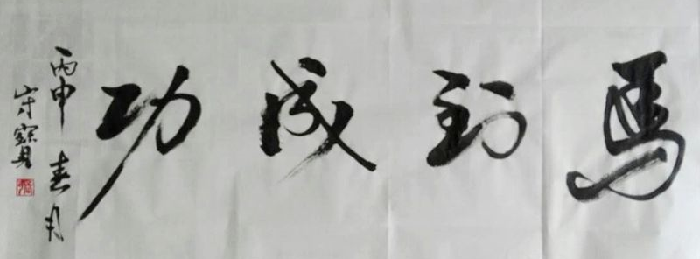 馬到成功
丙申春月
守寶